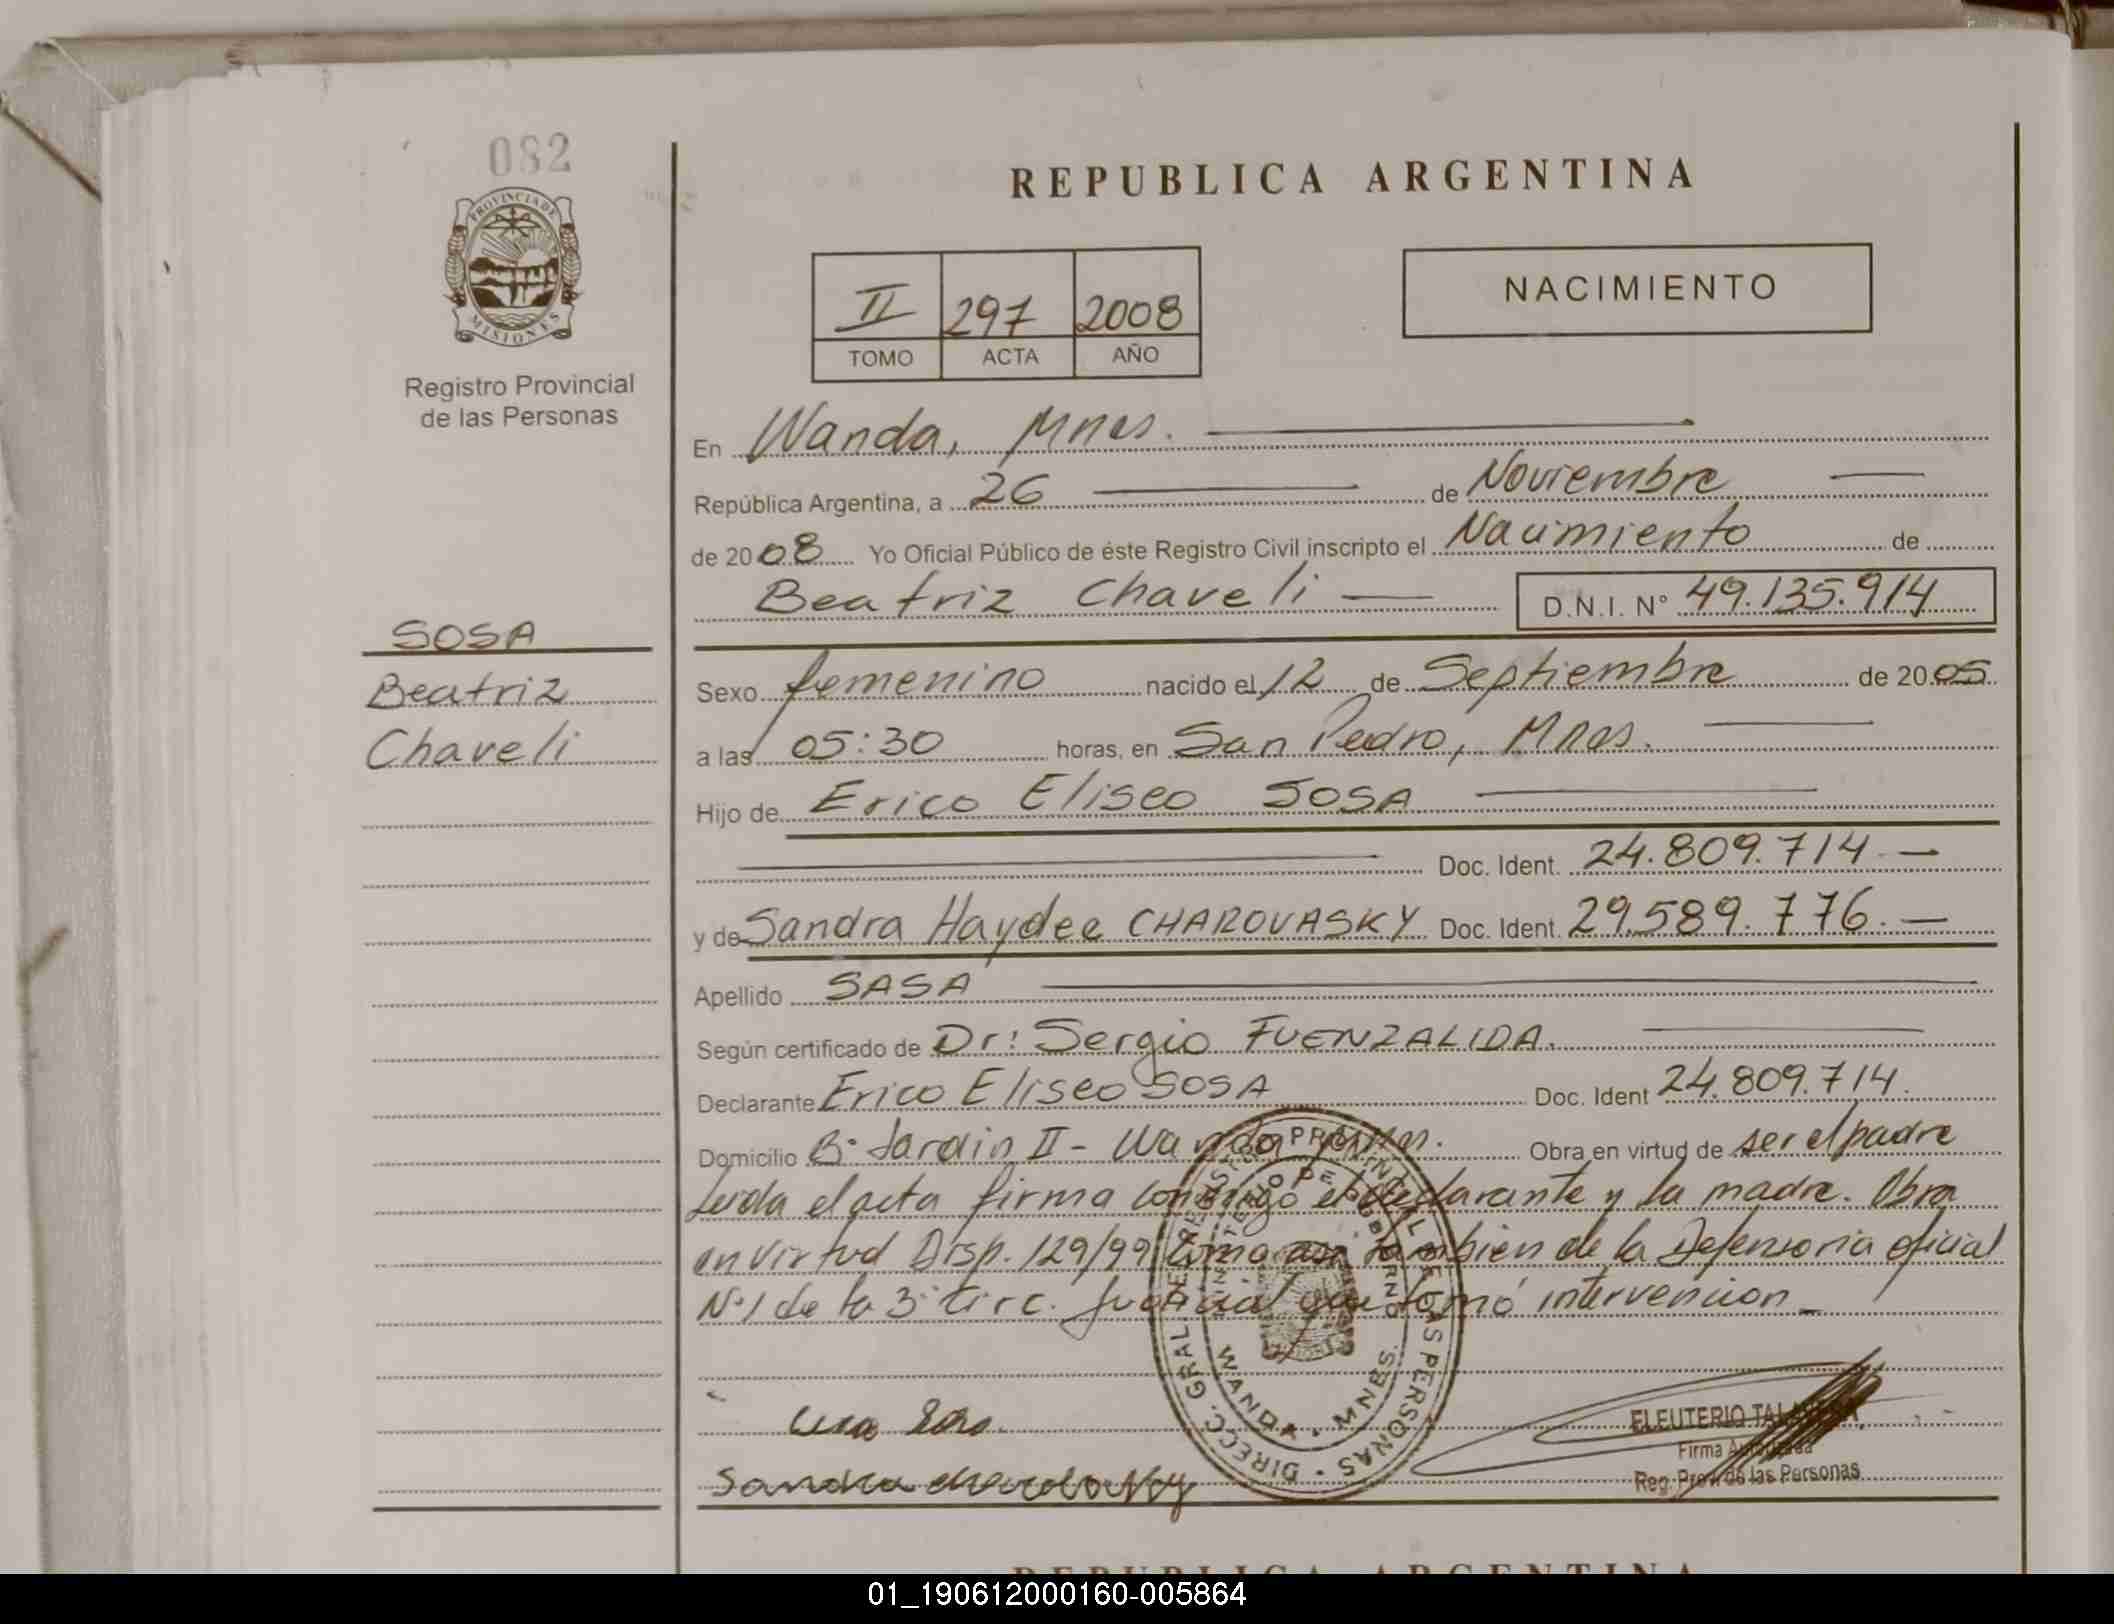 082
PROVINCIA DE
MISIONES
Registro Provincial
de las Personas
SOSA
Beatriz
Chaveli
REPUBLICA ARGENTINA
II 297 2008
TOMO ACTA AÑO
NACIMIENTO
En Wanda, Mnes.
República Argentina, a 26 de Noviembre
de 2008 Yo Oficial Público de éste Registro Civil inscripto el Nacimiento de
Beatriz Chaveli D.N.I. N° 49.135.914
Sexo femenino nacido el 12 de Septiembre de 2005
a las 05:30 horas, en San Pedro, Mnes.
Hijo de Erico Eliseo SOSA
Doc. Ident. 24.809.714
y de Sandra Haydee CHAROVASKY Doc. Ident. 29.589.776.
Apellido SASA
Según certificado de Dr: Sergio FUENZALIDA.
Declarante Erico Eliseo SOSA Doc. Ident 24.809.714.
Domicilio B° Jardin II - Wanda Mnes. Obra en virtud de ser el padre
Leida el acta firma conmigo el declarante y la madre. Obra
en virtud Disp. 129/99 como asi tambien de la Defensoria oficial
N°1 de la 3° Circ. Judicial que tomó intervencion
DIRECC. GRAL. DE REGISTRO PROVINCIAL DE LAS PERSONAS
MINISTERIO DE GOBIERNO
WANDA - MNES.
ELEUTERIO TALAVERA
Firma Autorizada
Reg. Prov. de las Personas
Sandra
REPUBLICA ARGENTINA
01_190612000160-005864